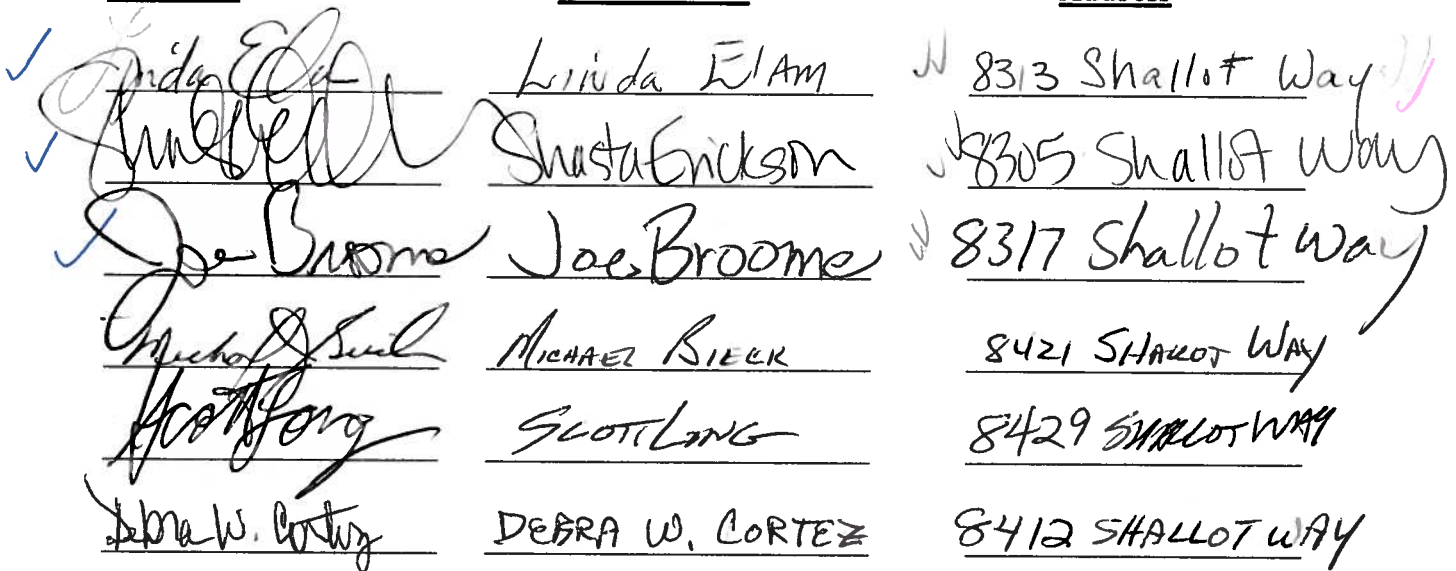 Linda Elam Linda Elam 8313 Shallot Way
Shasta Erickson 8305 Shallot Way
Joe Broome Joe Broome 8317 Shallot Way
Michael J. MICHAEL BIECK 8421 SHALLOT WAY
Scott Long SCOTT LONG 8429 SHALLOT WAY
Debra W. Cortez DEBRA W. CORTEZ 8412 SHALLOT WAY